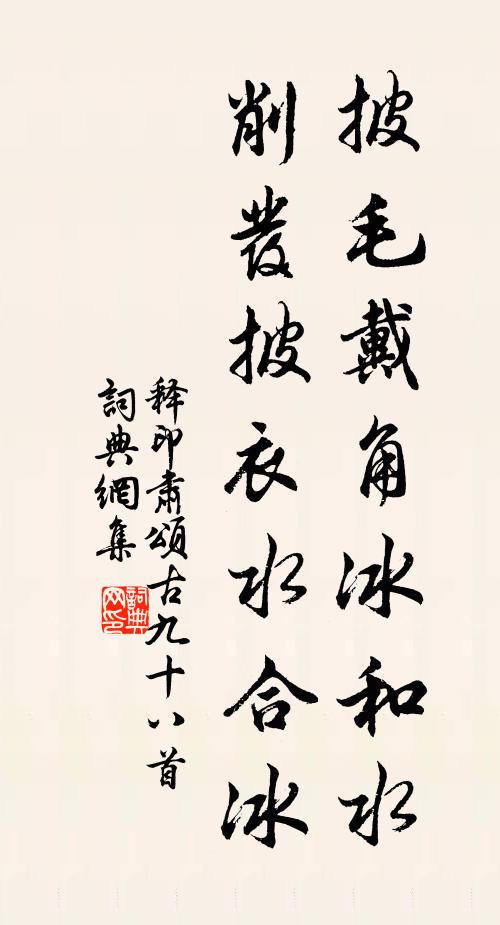 披毛戴角冰和水
削發披衣水合冰
释印肅頌古九十八首
詞典網集
詞典网印